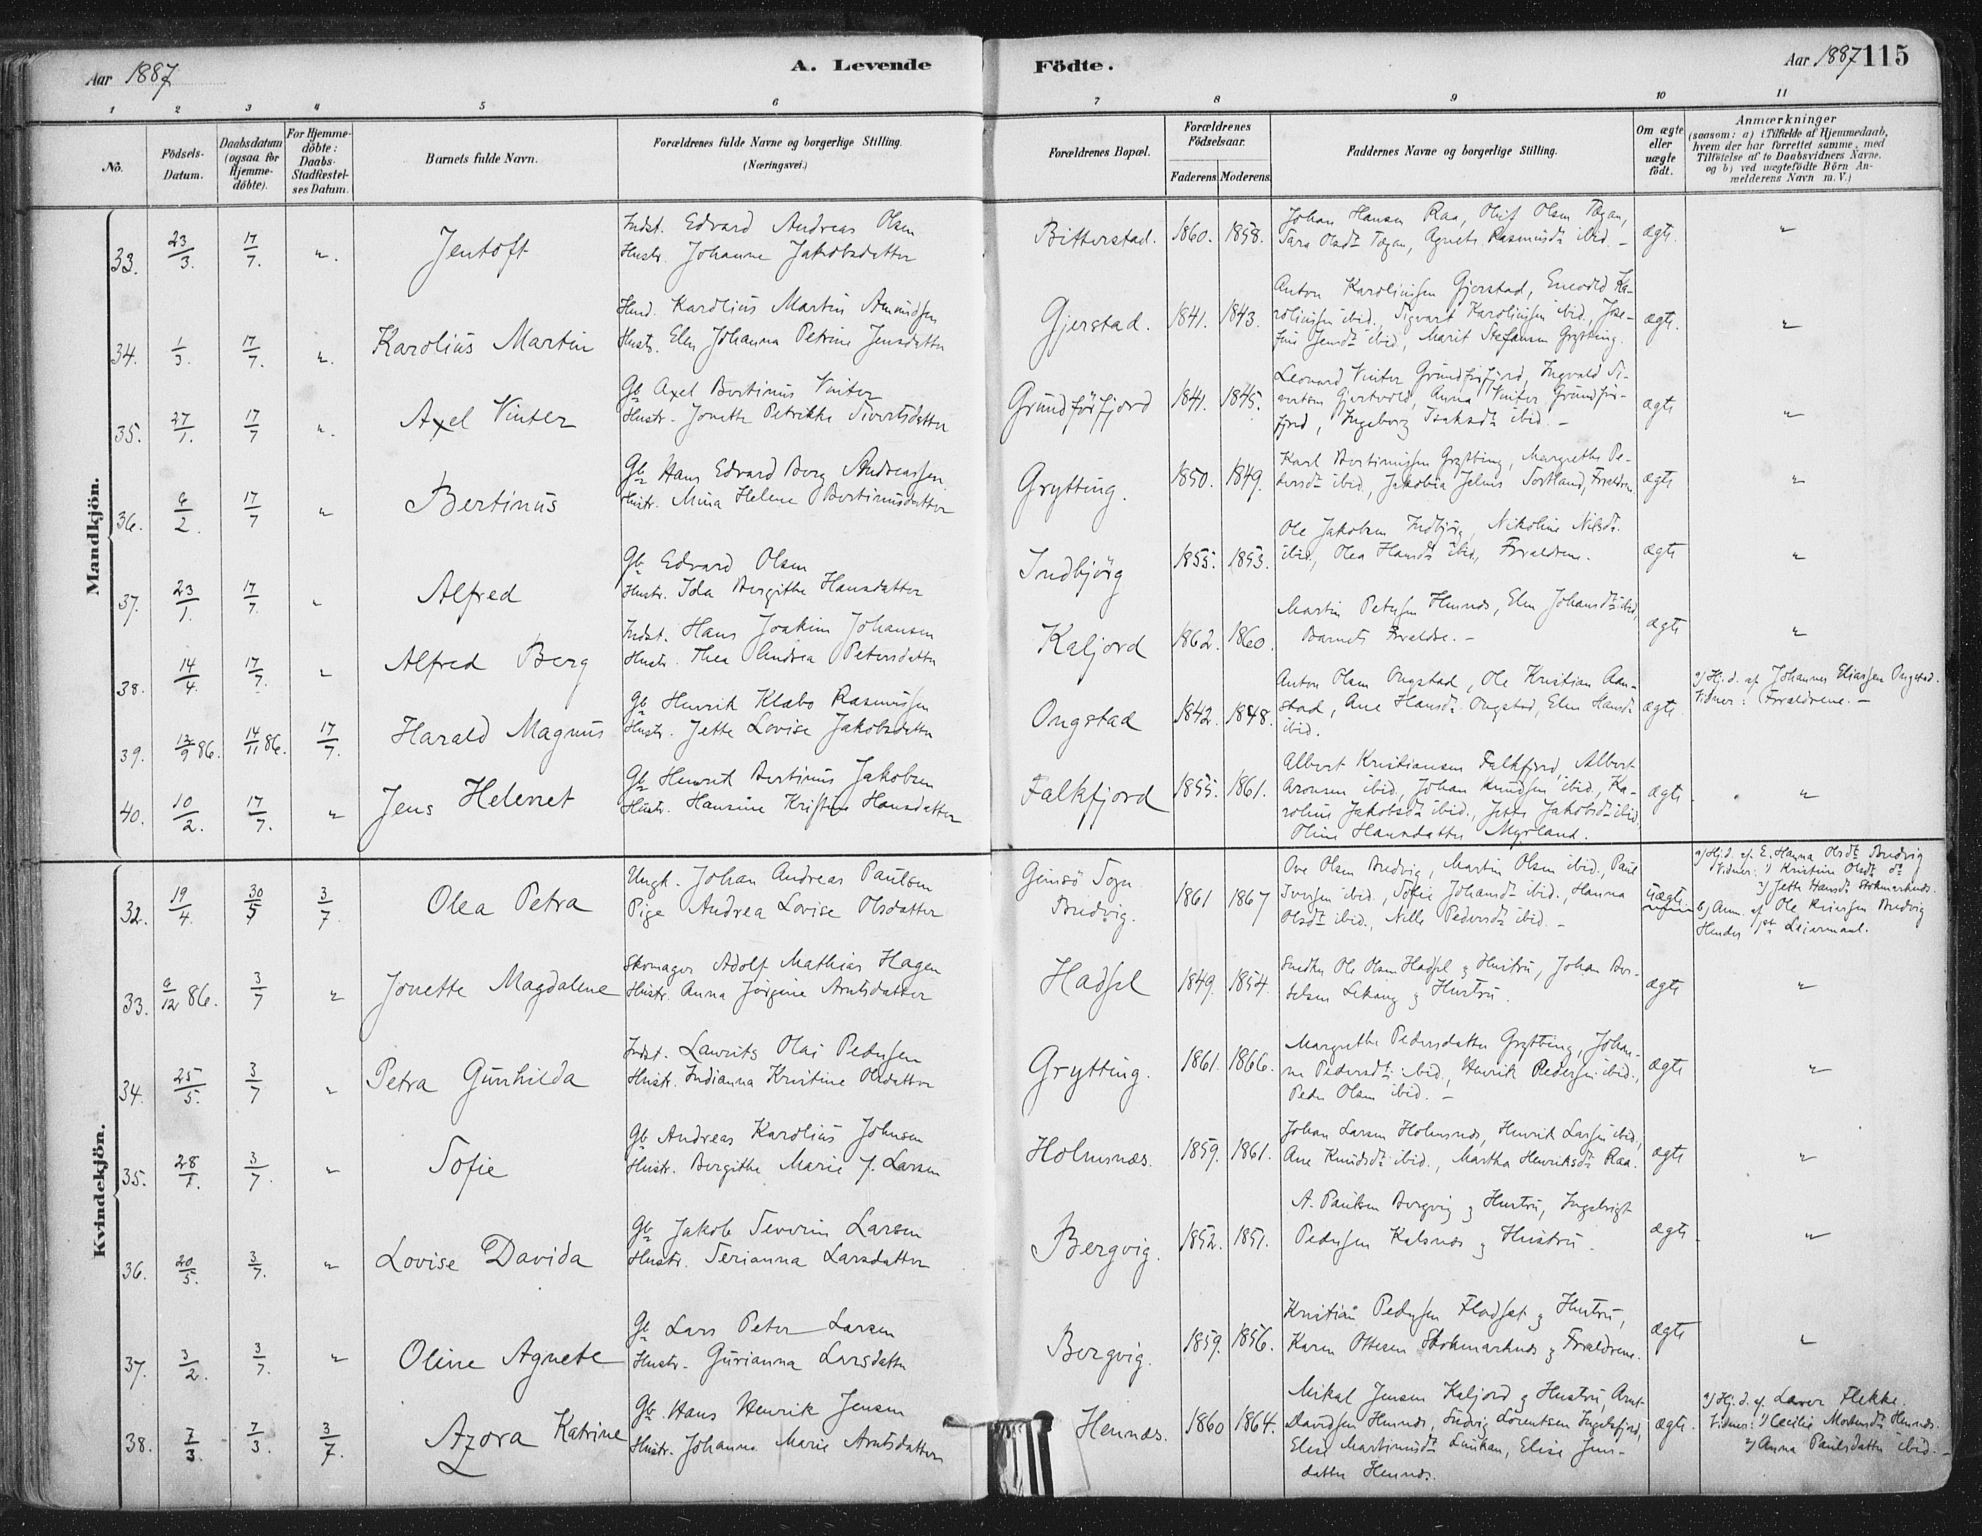 Aar 1887
A. Levende
Födte.
Aar 1887 115
1 2 3 4 5 6 7 8 9 10 11
No.
Födsels-
Datum.
Daabsdatum
(ogsaa for
Hjemme-
döbte).
For Hjemme-
döbte:
Daabs-
Stadfæstel-
ses Datum.
Barnets fulde Navn.
Forældrenes fulde Navne og borgerlige Stilling.
(Næringsvei.)
Forældrenes Bopæl.
Forældrenes
Födselsaar.
Faderens. Moderens.
Faddernes Navne og borgerlige Stilling.
Om ægte
eller
uægte
födt.
Anmærkninger
(saasom: a) i Tilfælde af Hjemmedaab,
hvem der har forrettet samme, med
Tilföielse af to Daabsvidners Navne,
og b) ved uægtefödte Börn An-
melderens Navn m. V.)
Mandkjön.
33. 23/3. 17/7. „. Jentoft
Indst. Edvard Andreas Olsen
Hustr. Johanne Jakobsdatter
Bitterstad. 1860. 1858.
Johan Hansen Raa, Oluf Olsen Tægan,
Sara Olsdr Tægan, Agnete Rasmusdr ibid. –
ægte. „
34. 1/3. 17/7. „. Karolius Martin
Karolius Martin Amundsen
Hustr. Elen Johanna Petrine Jensdatter
Gjerstad. 1841. 1843.
Anton Karoliussen Gjerstad, Ka-
roliussen ibid., Sigvart Karoliussen ibid., Jose-
fine Jensdr ibid, Marit Stefansen Grytting.
ægte. „
35. 27/1. 17/7 „. Axel Vinter
Gb Axel Bertinus Vinter
Hustr. Jonette Petrikke Sivertsdatter
Grundförfjord 1841. 1845.
Leonard Vinter Grundförfjord, Ingvald Si-
vertsen Anna Vinter Grundför-
fjord, Ingeborg Isaksdr ibid. –
ægte „
36. 6/2. 17/7 „ Bertinus
Gb Hans Edvard Berg Andreassen
Hustr. Mina Helene Bertinusdatter
Grytting. 1850. 1849.
Karl Bertinussen Grytting, Margrethe Pe-
dersdr ibid, Jakobea Sortland, Forældrene.
ægte „
37. 23/1. 17/7. „ Alfred
Gb Edvard Olsen
Hustr. Ida Bergithe Hansdatter
Indbjörg 1855. 1853.
Ole Jakobsen Indbjörg, Nikoline Nilsdr.
ibid, Olea Hansdr ibid, Forældrene.
ægte „
38. 14/4. 17/7. „ Alfred Berg
Indst. Hans Joakim Johansen
Hustr. Thea Andrea Petersdatter
Kaljord 1862. 1860.
Martin Petersen Hennes, Elen Johansdr ibid,
Barnets Forældre. –
ægte „
39. 12/9 86. 14/11 86. 17/7. Harald Magnus
Gb Henrik Klæbo Rasmussen
Hustr. Jette Lovise Jakobsdatter
Ongstad 1842. 1848.
Anton Olsen Ongstad, Ole Kristian Aan-
stad, Ane Hansdr Ongstad, Elen Hansdr
ibid.
ægte.
a) Hj. d. af Johannes Eliassen Ongstad.
Vidner: Forældrene. –
40. 10/2. 17/7. „ Jens Helenet
Gb Henrik Bertinus Jakobsen
Hustr. Hansine Kristine Hansdatter
Falkfjord 1855. 1861.
Albert Kristiansen Falkfjord, Albert
Aronsen ibid, Johan Knudsen ibid., Ka-
roline Jakobsdr ibid., Jette Jakobsdr ibid
Oline Hansdatter Myrland.
ægte. „
Kvindekjön.
32. 19/4. 30/5 3/7. Olea Petra
Ungk. Johan Andreas Paulsen
Pige Andrea Lovise Olsdatter
Gimsö Sogn
Budvig. 1861 1867
Ove Olsen Budvig, Martin Olsen ibid., Paul
Iversen ibid., Sofie Johansdr ibid., Hanna
Olsdr ibid., Nille Pedersdr ibid. –
uægte.
a) Hj. d. af E. Hanna Olsdr Budvig
Vidner: 1) Kristine Olsdr do
2) Jette Hansdr Stokmarknes.
b) Anm. af Ole Budvig
Hendes 1ste Leiermaal.
33. 6/12 86. 3/7 „ Jonette Magdalene
Skomager Adolf Mathias Hagen
Hustr. Anna Jörgine Arntsdatter
Hadsel 1849. 1854.
Snedker Ole Olsen Hadsel og Hustru, Johan Ber-
Lekang og Hustru.
ægte „
34. 25/5. 3/7 „ Petra Gunhilda
Indst. Laurits Olai Pedersen
Hustr. Indianna Kristine Olsdatter
Grytting. 1861. 1866.
Margrethe Pedersdatter Grytting, Johan-
ne Pedersdr ibid, Henrik Pedersen ibid.,
Peder Olsen ibid. –
ægte „
35. 28/1. 3/7. „ Sofie
Gb Andreas Karolius Johnsen
Hustr. Bergithe Marie f. Larsen
Holmsnæs. 1859. 1861.
Johan Larsen Holmsnes, Henrik Larsen ibid,
Ane Knudsdr ibid., Martha Henriksdr Raa.
ægte „
36. 20/5. 3/7. „ Lovise Davida
Gb Jakob Severin Larsen
Hustr. Serianna Larsdatter
Bergvig. 1852. 1851.
A. Paulsen Bergvig og Hustru, Ingebrigt
Pedersen Kalsnes og Hustru.
ægte. „
37. 3/2. 3/7. „ Oline Agnete
Gb Lars Peter Larsen
Hustr. Gurianna Larsdatter
Bergvig. 1859. 1856.
Kristian Pedersen Fladset og Hustru,
Karen Ottesen Stokmarknes og Forældrene.
ægte „
38. 7/3. 7/3. 3/7. Azora Katrine
Gb Hans Henrik Jensen
Hustr. Johanna Marie Arntsdatter
Hennæs. 1860 1864.
Mikal Jensen Kaljord og Hustru, Arnt
Davidsen Hennes, Ludvig Lorentsen Ingelsfjord,
Elen Martinusdr Elise Jens-
datter Hennes.
ægte.
a) Hj. d. af Laver Flekke.
Vidner: 1) Cecilie Hennes.
2) Anna Paulsdatter ibid. –